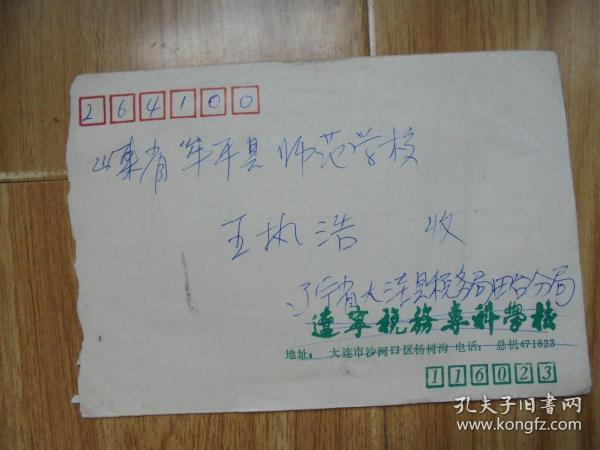 264100
山东省牟平县师范学校
王执浩 收
辽宁省大洼县税务局田台分局
遼寧税務專科學校
地址: 大连市沙河口区杨树沟 电话: 总机471823
116023
孔夫子旧书网
www.kongfz.com